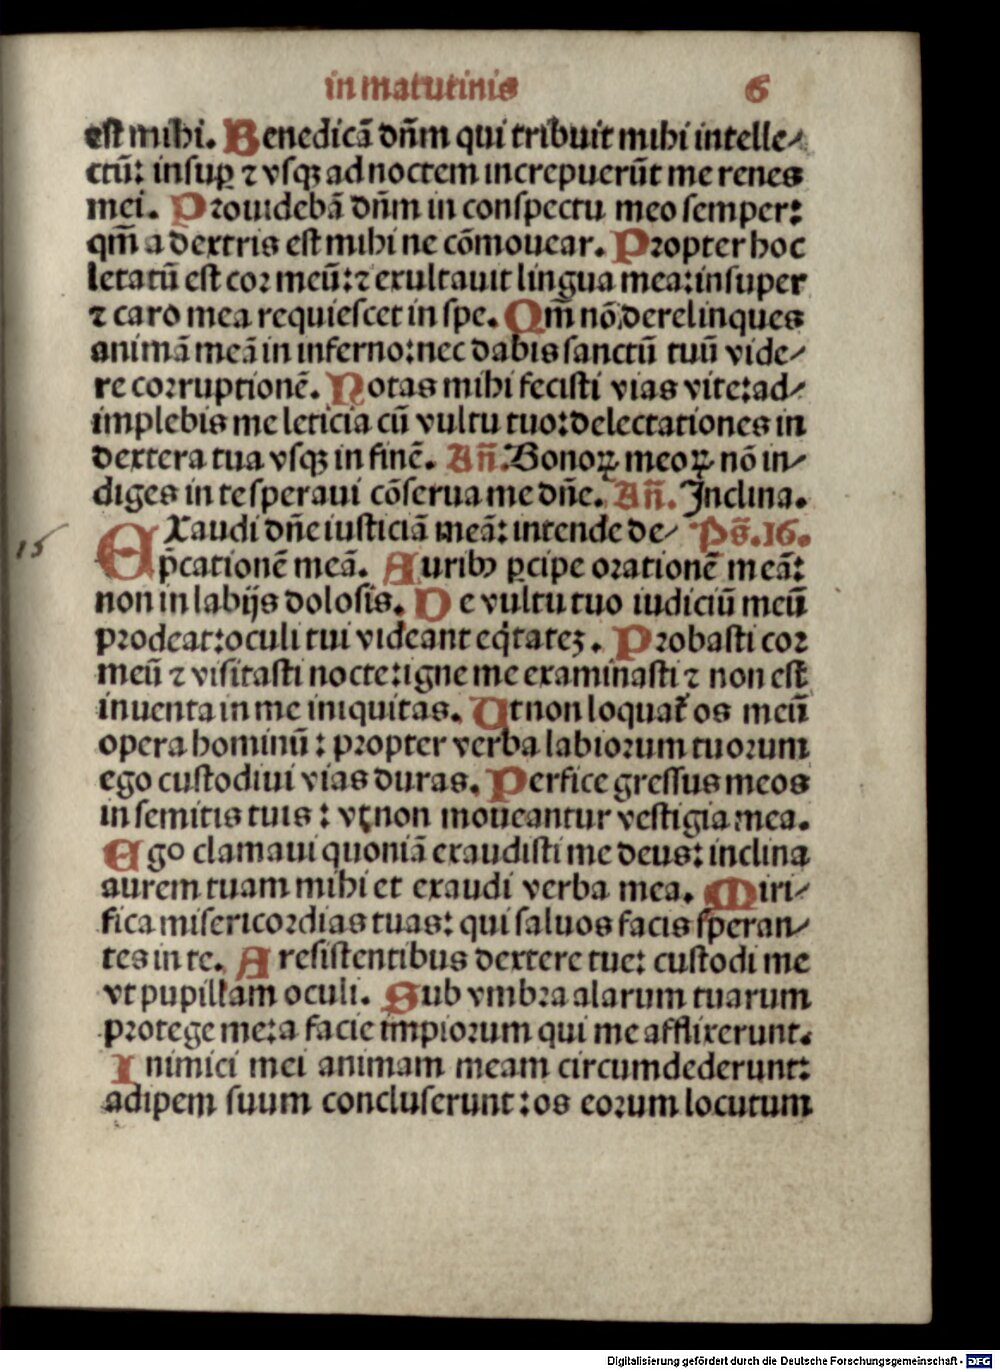 in matutinis 6
est mihi. Benedicā dn̄m qui tribuit mihi intelle⸗
ctū: insuꝑ ⁊ vsqꝫ ad noctem increpuerūt me renes
mei. Prouidebā dn̄m in conspectu meo semper:
qm̄ a dextris est mihi ne cōmouear. Propter hoc
letatū est cor meū: ⁊ exultauit lingua mea: insuper
⁊ caro mea requiescet in spe. Qm̄ nō derelinques
animā meā in inferno: nec dabis sanctū tuū vide⸗
re corruptionē. Notas mihi fecisti vias vite: ad⸗
implebis me leticia cū vultu tuo: delectationes in
dextera tua vsqꝫ in finē. Añ. Bonoꝝ meoꝝ nō in⸗
diges in te speraui cōserua me dn̄e. Añ. Inclina.
EXaudi dn̄e iusticiā meā: intende de⸗ Ps̄. 16.
p̄cationē meā. Auribꝰ ꝑcipe orationē meā:
15
non in labijs dolosis. De vultu tuo iudiciū meū
prodeat: oculi tui videant eq̇tateꝫ. Probasti cor
meū ⁊ visitasti nocte: igne me examinasti ⁊ non est
inuenta in me iniquitas. Ut non loquat᷑ os meū
opera hominū: propter verba labiorum tuorum
ego custodiui vias duras. Perfice gressus meos
in semitis tuis: vt non moueantur vestigia mea.
Ego clamaui quoniā exaudisti me deus: inclina
aurem tuam mihi et exaudi verba mea. Miri⸗
fica misericordias tuas: qui saluos facis speran⸗
tes in te. A resistentibus dextere tue: custodi me
vt pupillam oculi. Sub vmbra alarum tuarum
protege me: a facie impiorum qui me afflixerunt.
Inimici mei animam meam circumdederunt:
adipem suum concluserunt: os eorum locutum
Digitalisierung gefördert durch die Deutsche Forschungsgemeinschaft - DFG